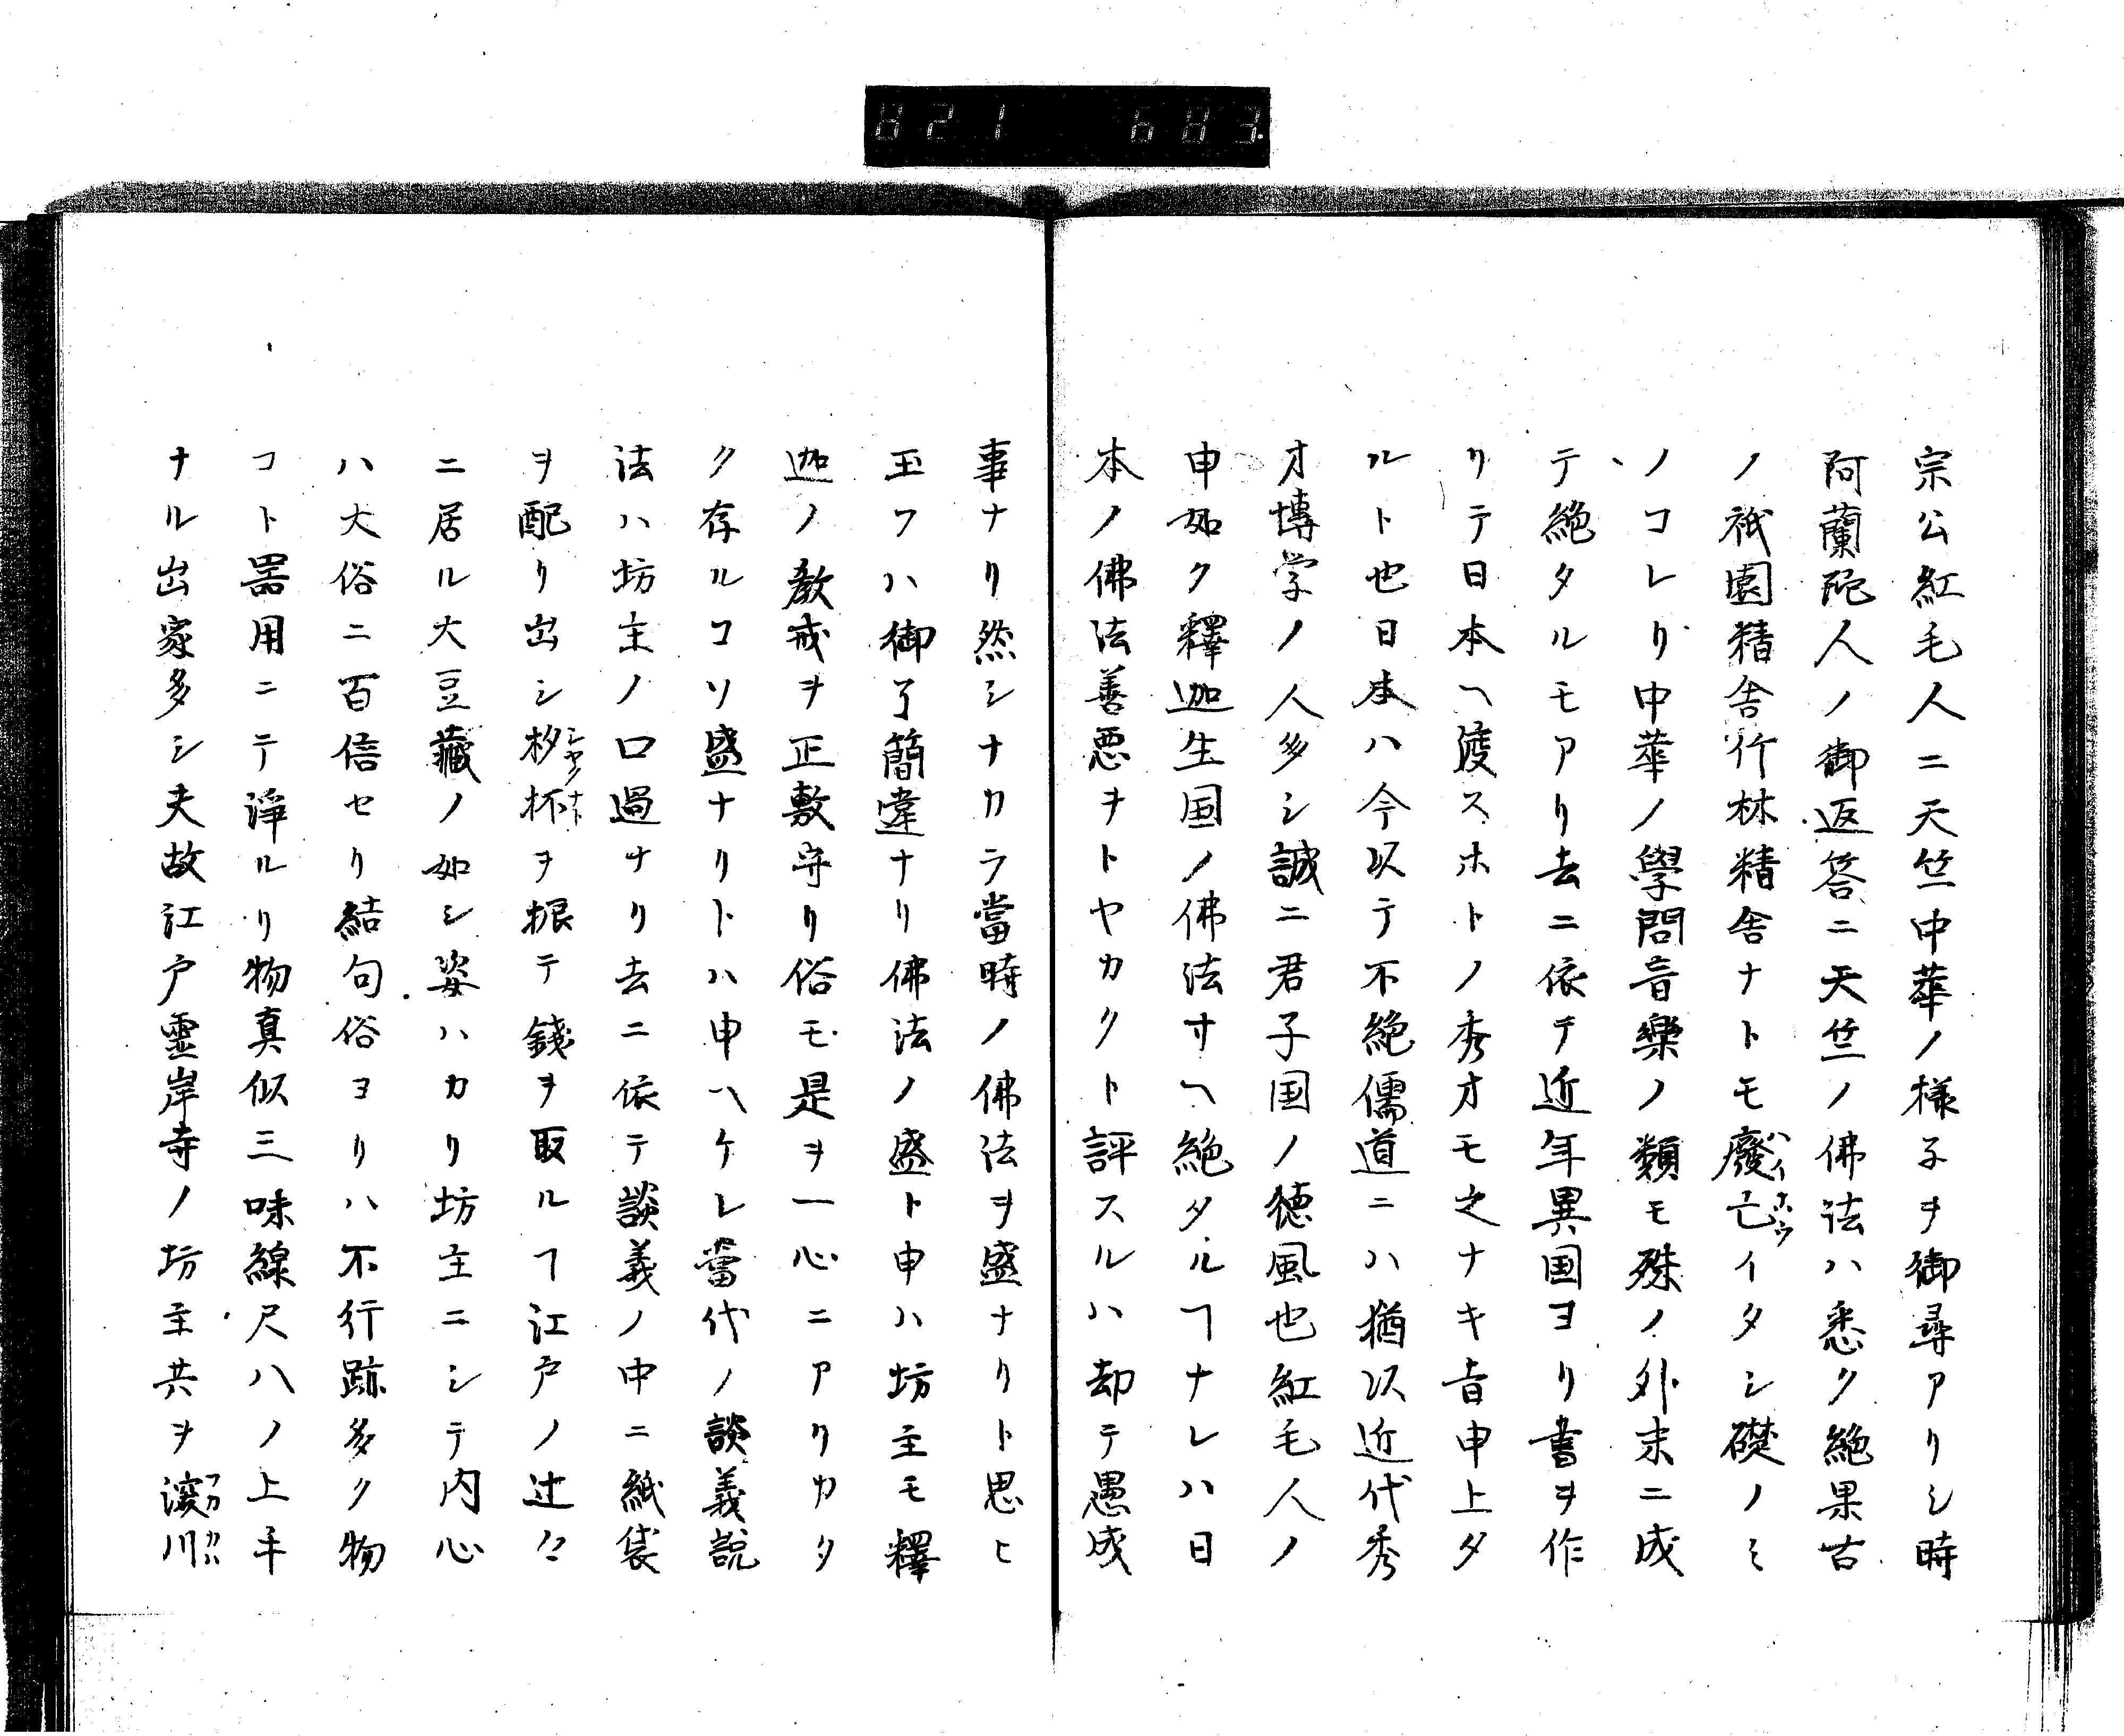 821 683
宗公紅毛人ニ天竺中華ノ様子ヲ御尋アリシ時
阿蘭陀人ノ御返答ニ天竺ノ佛法ハ悉ク絶果古
ノ祇園精舎竹林精舎ナトモ廢亡イタシ礎ノミ
ノコレリ中華ノ學問音樂ノ類モ殊ノ外末ニ成
テ絶タルモアリ去ニ依テ近年異国ヨリ書ヲ作
リテ日本ヘ渡スホトノ秀才モ之ナキ旨申上タ
ルト也日本ハ今以テ不絶儒道ニハ猶以近代秀
才博学ノ人多シ誠ニ君子国ノ徳風也紅毛人ノ
申如ク釋迦生国ノ佛法サヘ絶タルヿナレハ日
本ノ佛法善悪ヲトヤカクト評スルハ却テ愚成
事ナリ然シナカラ當時ノ佛法ヲ盛ナリト思ヒ
玉フハ御了簡違ナリ佛法ノ盛ト申ハ坊主モ釋
迦ノ教戒ヲ正敷守リ俗モ是ヲ一心ニアリカタ
ク存ルコソ盛ナリトハ申ヘケレ當代ノ談義説
法ハ坊主ノ口過ナリ去ニ依テ談義ノ中ニ紙袋
ヲ配リ出シ杓抔ヲ振テ錢ヲ取ルヿ江戸ノ辻々
ニ居ル大豆藏ノ如シ姿ハカリ坊主ニシテ内心
ハ大俗ニ百倍セリ結句俗ヨリハ不行跡多ク物
コト器用ニテ淨ルリ物真似三味線尺八ノ上手
ナル出家多シ夫故江戸靈岸寺ノ坊主共ヲ深川